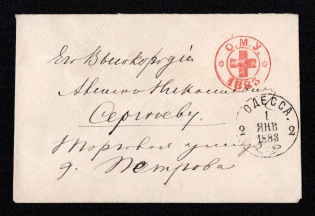 Его Высокородію
Сергѣеву.
Торговая улица
д. Петрова
О.М.У.
1883
ОДЕССА.
2 1 2
ЯНВ
1883